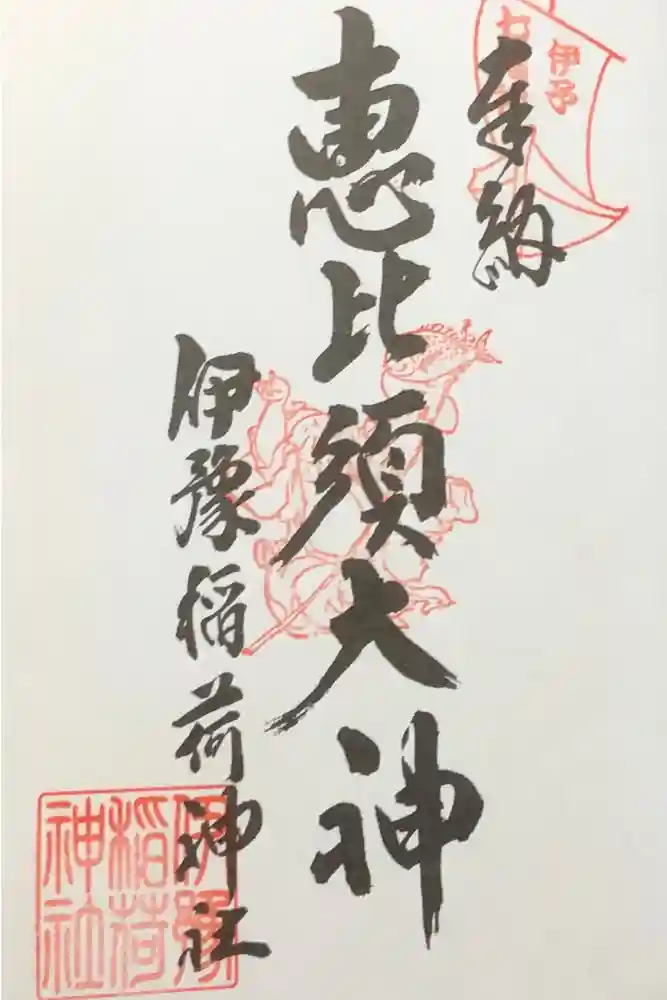 奉納
伊予
七福
恵比須大神
伊豫稲荷神社
伊豫
稲荷
神社